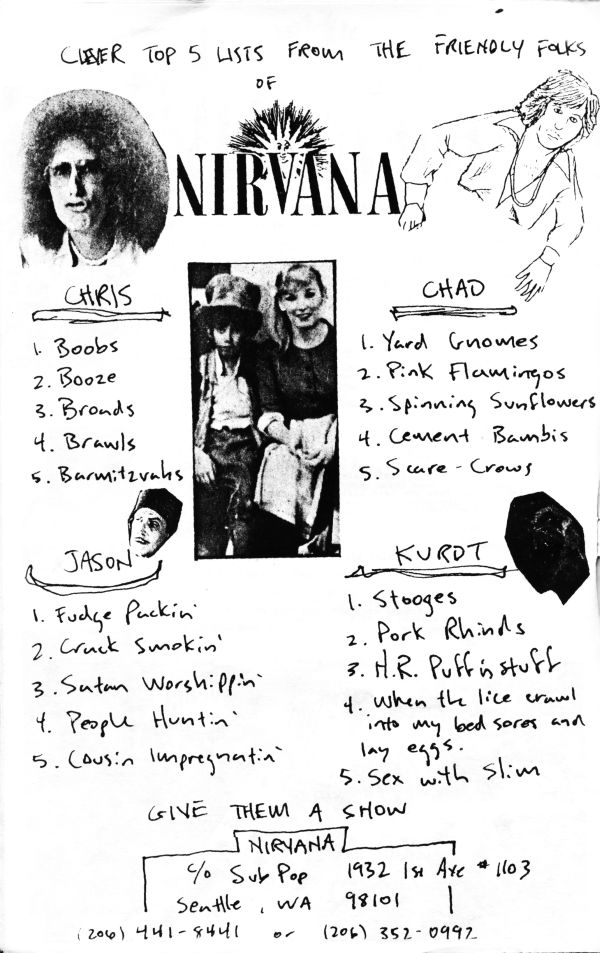 CLEVER TOP 5 LISTS FROM THE FRIENDLY FOLKS
OF
NIRVANA
CHRIS
1. Boobs
2. Booze
3. Broads
4. Brawls
5. Barmitzvahs
CHAD
1. Yard Gnomes
2. Pink Flamingos
3. Spinning Sunflowers
4. Cement Bambis
5. Scare-Crows
JASON
1. Fudge Packin'
2. Crack Smokin'
3. Satan Worshippin'
4. People Huntin'
5. Cousin Impregnatin'
KURDT
1. Stooges
2. Pork Rhinds
3. H.R. Puffinstuff
4. when the lice crawl
into my bed sores and
lay eggs.
5. Sex with Slim
GIVE THEM A SHOW
NIRVANA
c/o Sub Pop 1932 1st Ave #1103
Seattle, WA 98101
(206) 441-8441 or (206) 352-0992